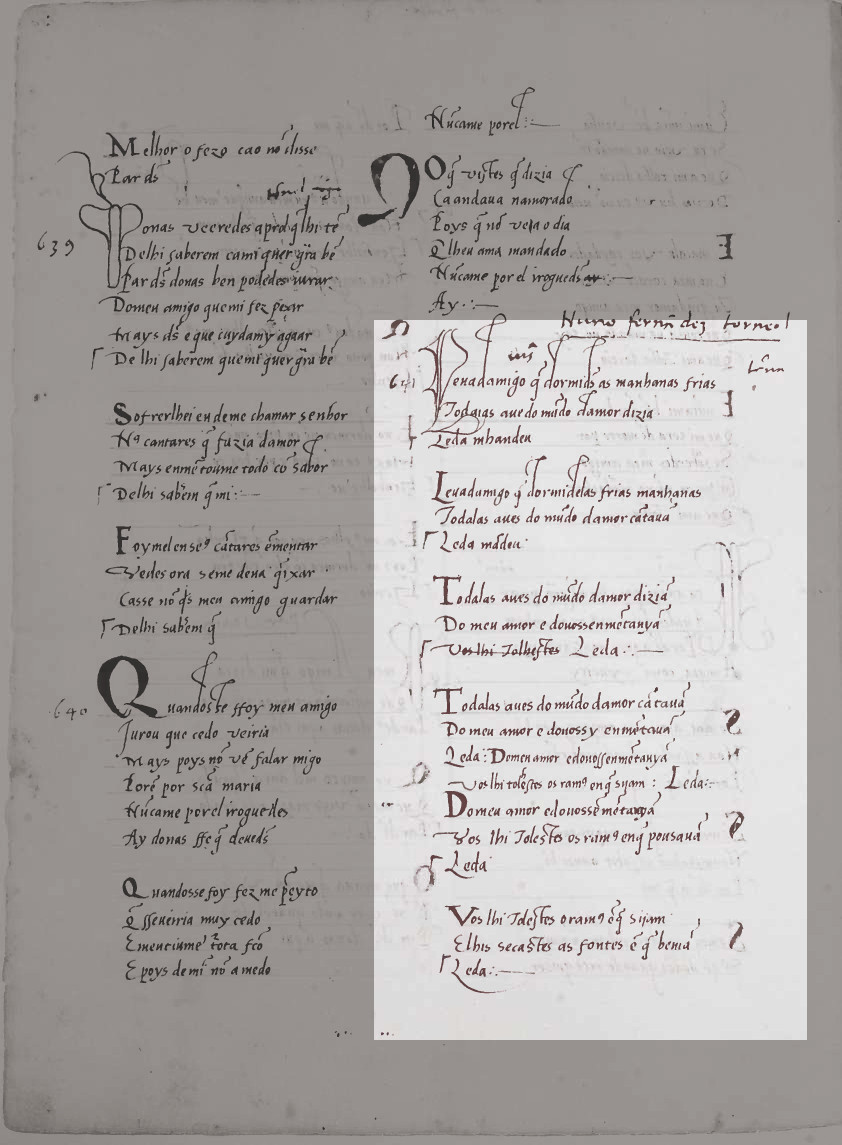 Melhor o fezo ca o nō disse
Par ds
639
Donas veeredes a prol q̄ lhi tē
Delhi saberem ca mi quer grā bē
Par ds donas ben podedes iurar
Do meu amigo que mi fez pesar
Mays ds e que cuydamy gaar
De lhi saberem que mi quer grā bē
Sofrerlhei eu de me chamar senhor
Nos cantares q̄ fazia damor
Mays enmētoume todo cō sabor
Delhi sabēm q̄ mi:
Foymel en seus cātares ēmentar
Vedes ora seme deua q̄ixar
Casse nō q̄s meu amigo guardar
Delhi sabēm q̄
640
Quandoste ffoy meu amigo
Jurou que cedo veiria
Mays poys nō vē falar migo
Porē por scā maria
Nūca me por el roguedes
Ay donas ffe q̄ deueds
Quandosse foy fez me preyto
Q̄ sseueiria muy cedo
E mentiume tota fcō
E poys de mī nō a medo
Nūca me por el:
O q̄ vistes q̄ dizia
Ca andaua namorado
Poys q̄ nō veja o dia
Q̄ lh eu ama mandado
Nūca me por el irogueds
Ay.:
Nuno fernādez torneol
641
Leuad amigo q̄ dormides as manhanas frias
Todalas aues do mūdo damor dizia
Leda mhandeu
Leuadamigo q̄ dormidelas frias manhanas
Todalas aues do mūdo damor cātauā
Leda mādeu
Todalas aues do mūdo damor dizia
Do meu amor e douossenmētaryā
Vos lhi Tolhestes Leda.:
Todalas aues do mūdo damor cātauā
Do meu amor e douossy enmētauā
Leda: Domeu amor edouossenmētauyā
vos lhi tolestes os ramos en q̄ siiam: Leda:
Domeu amor edouossēmētauyā
Vos lhi Tolestes os ramos en q̄ pousauā
Leda
Vos lhi Tolestes o ramos ē q̄ siiam
E lhis secastes as fontes ē q̄ beuiā
Leda.: